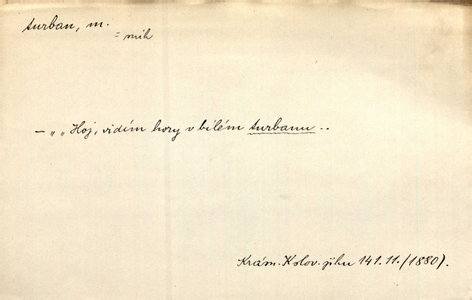 turban, m.
= snih
— „ „ Hoj, vidím hory v bílém turbanu ..
Krám. Kolov. jihu 141. 11. (1880).